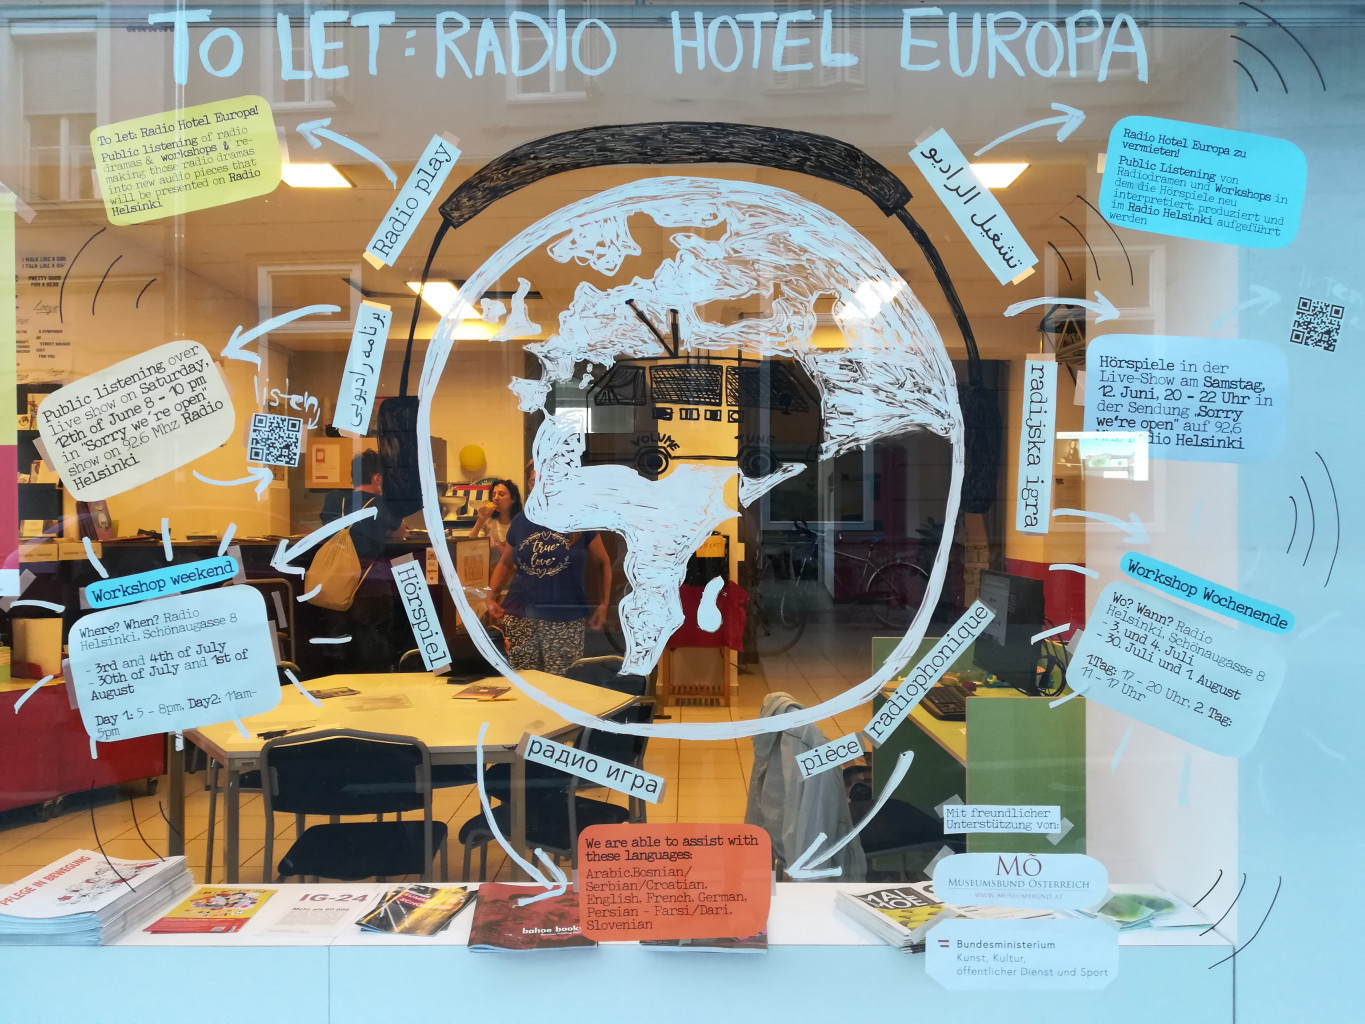 TO LET: RADIO HOTEL EUROPA
To let: Radio Hotel Europa!
Public listening of radio
dramas & workshops & re-
making those radio dramas
into new audio pieces that
will be presented on Radio
Helsinki
Radio play
تشغيل الراديو
Radio Hotel Europa zu
vermieten!
Public Listening von
Radiodramen und Workshops in
dem die Hörspiele neu
interpretiert, produziert und
im Radio Helsinki aufgeführt
werden
Public listening over
live show on Saturday,
12th of June 8 - 10 pm
in "Sorry we're open"
show on 92.6 Mhz Radio
Helsinki
listen
برنامه رادیویی
radijska igra
Hörspiele in der
Live-Show am Samstag,
12. Juni, 20 - 22 Uhr in
der Sendung „Sorry
we're open" auf 92.6
Radio Helsinki
VOLUME
TUNE
true
love
Workshop weekend
Where? When? Radio
Helsinki, Schönaugasse 8
- 3rd and 4th of July
- 30th of July and 1st of
August
Day 1: 5 - 8pm, Day2: 11am-
5pm
Hörspiel
Workshop Wochenende
Wo? Wann? Radio
Helsinki, Schönaugasse 8
- 3. und 4. Juli
- 30. Juli und 1. August
1.Tag: 17 - 20 Uhr, 2. Tag:
11 - 17 Uhr
радио игра
pièce radiophonique
We are able to assist with
these languages:
Arabic,Bosnian/
Serbian/Croatian,
English, French, German,
Persian - Farsi/Dari,
Slovenian
Mit freundlicher
Unterstützung von:
MÖ
MUSEUMSBUND ÖSTERREICH
WWW.MUSEUMSBUND.AT
Bundesministerium
Kunst, Kultur,
öffentlicher Dienst und Sport
PFLEGE IN BEWEGUNG
IG-24
bahoe books